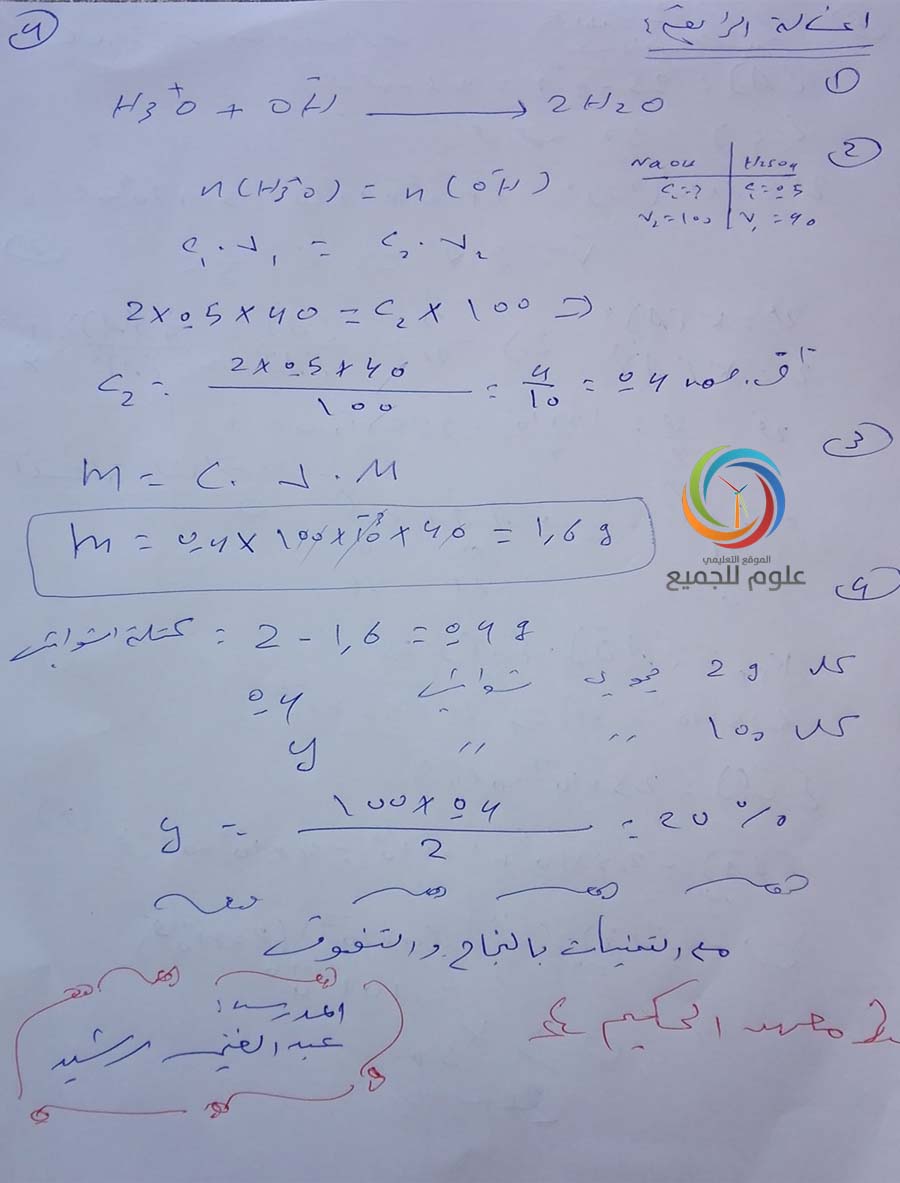 4
المسألة الرابعة:
1
H3O⁺ + OH⁻ → 2H2O
2
NaOH | H2SO4
C2=? | C1=0.5
V2=100 | V1=40
n(H3O⁺) = n(OH⁻)
C1 . V1 = C2 . V2
2 × 0.5 × 40 = C2 × 100 ⇒
C2 = (2 × 0.5 × 40) / 100 = 4/10 = 0.4 mol.l⁻¹
3
m = C . V . M
m = 0.4 × 100 × 10⁻³ × 40 = 1,6 g
الموقع التعليمي
علوم للجميع
4
كتلة الشوائب = 2 - 1,6 = 0.4 g
كل 2 g يحوي شوائب 0.4
كل 100 〃 〃 y
y = (100 × 0.4) / 2 = 20 %
مع التمنيات بالنجاح والتفوق
المدرس:
عبد الغني رشيد
معهد الحكيم